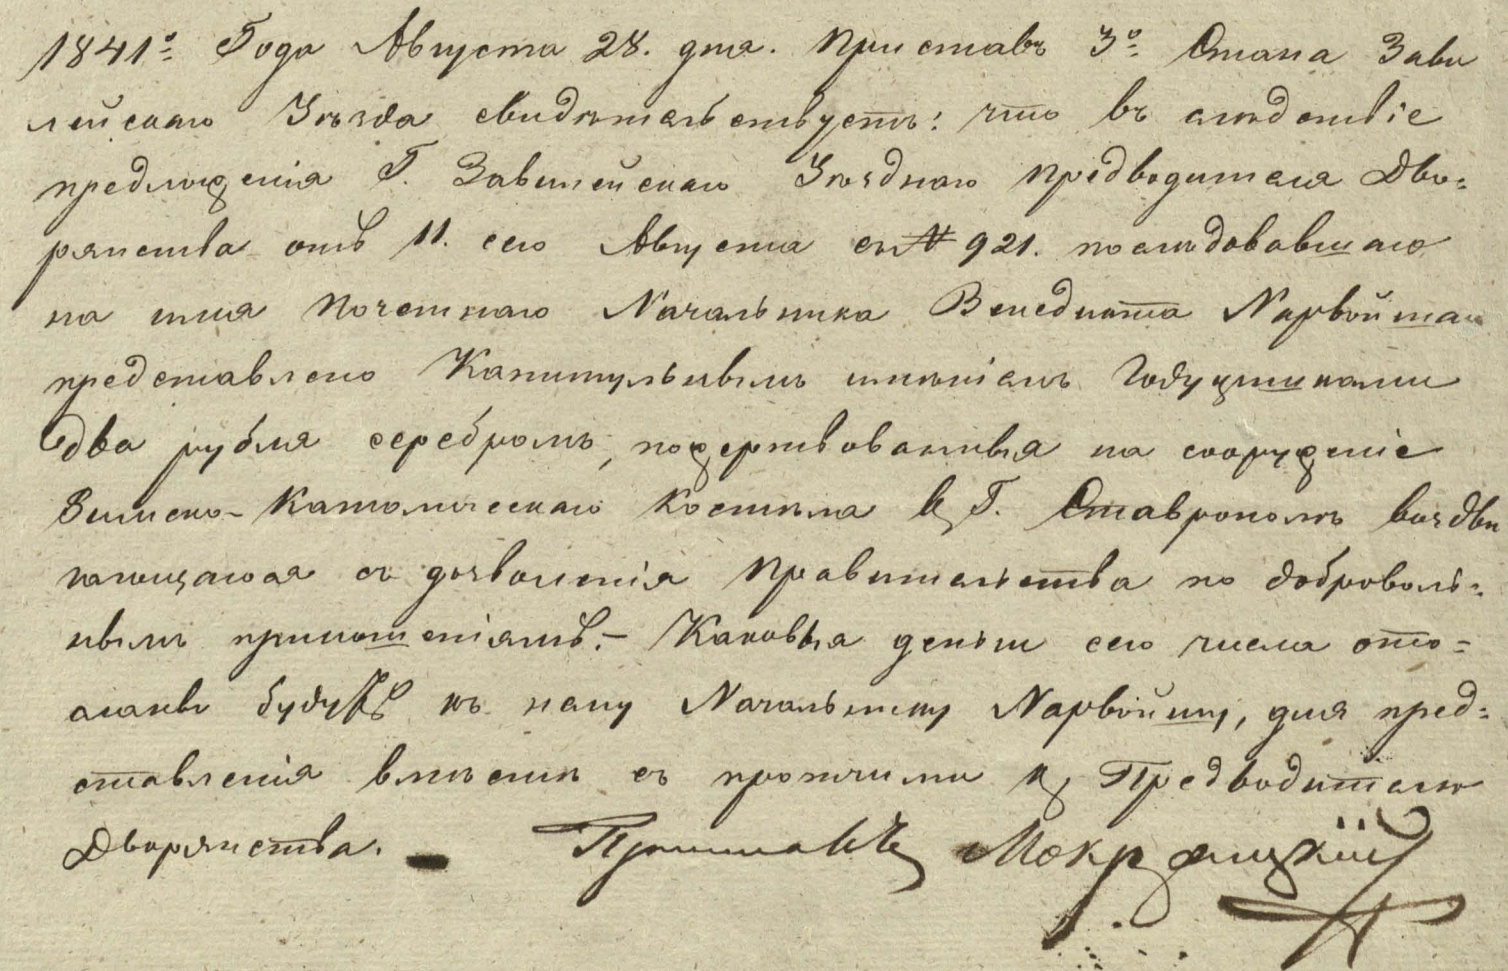 1841го Года Августа 28. дня. Приставъ 3го Стана Зави
лейскаго Уѣзда свидѣтельствуетъ: что въ слѣдствіе
предложенія Г. Завилейскаго Уѣзднаго Предводителя Дво=
рянства отъ 11. сего Августа съ № 921. послѣдовавшаго
на имя Почетнаго Начальника Венедикта Нарвойша
представлено Капитульнымъ имѣніемъ Годуцишками
два рубля серебромъ, пожертвованныя на сооруженіе
Римско-Католическаго Костела въ Г. Ставрополѣ воздви
гающагося съ дозволенія Правительства по доброволь=
нымъ приношеніямъ.- Каковыя деньги сего числа ото=
сланы будутъ къ пану Начальнику Нарвойшу, для пред=
ставленія вмѣстѣ съ прочими къ Предводителю
Дворянства. Приставъ